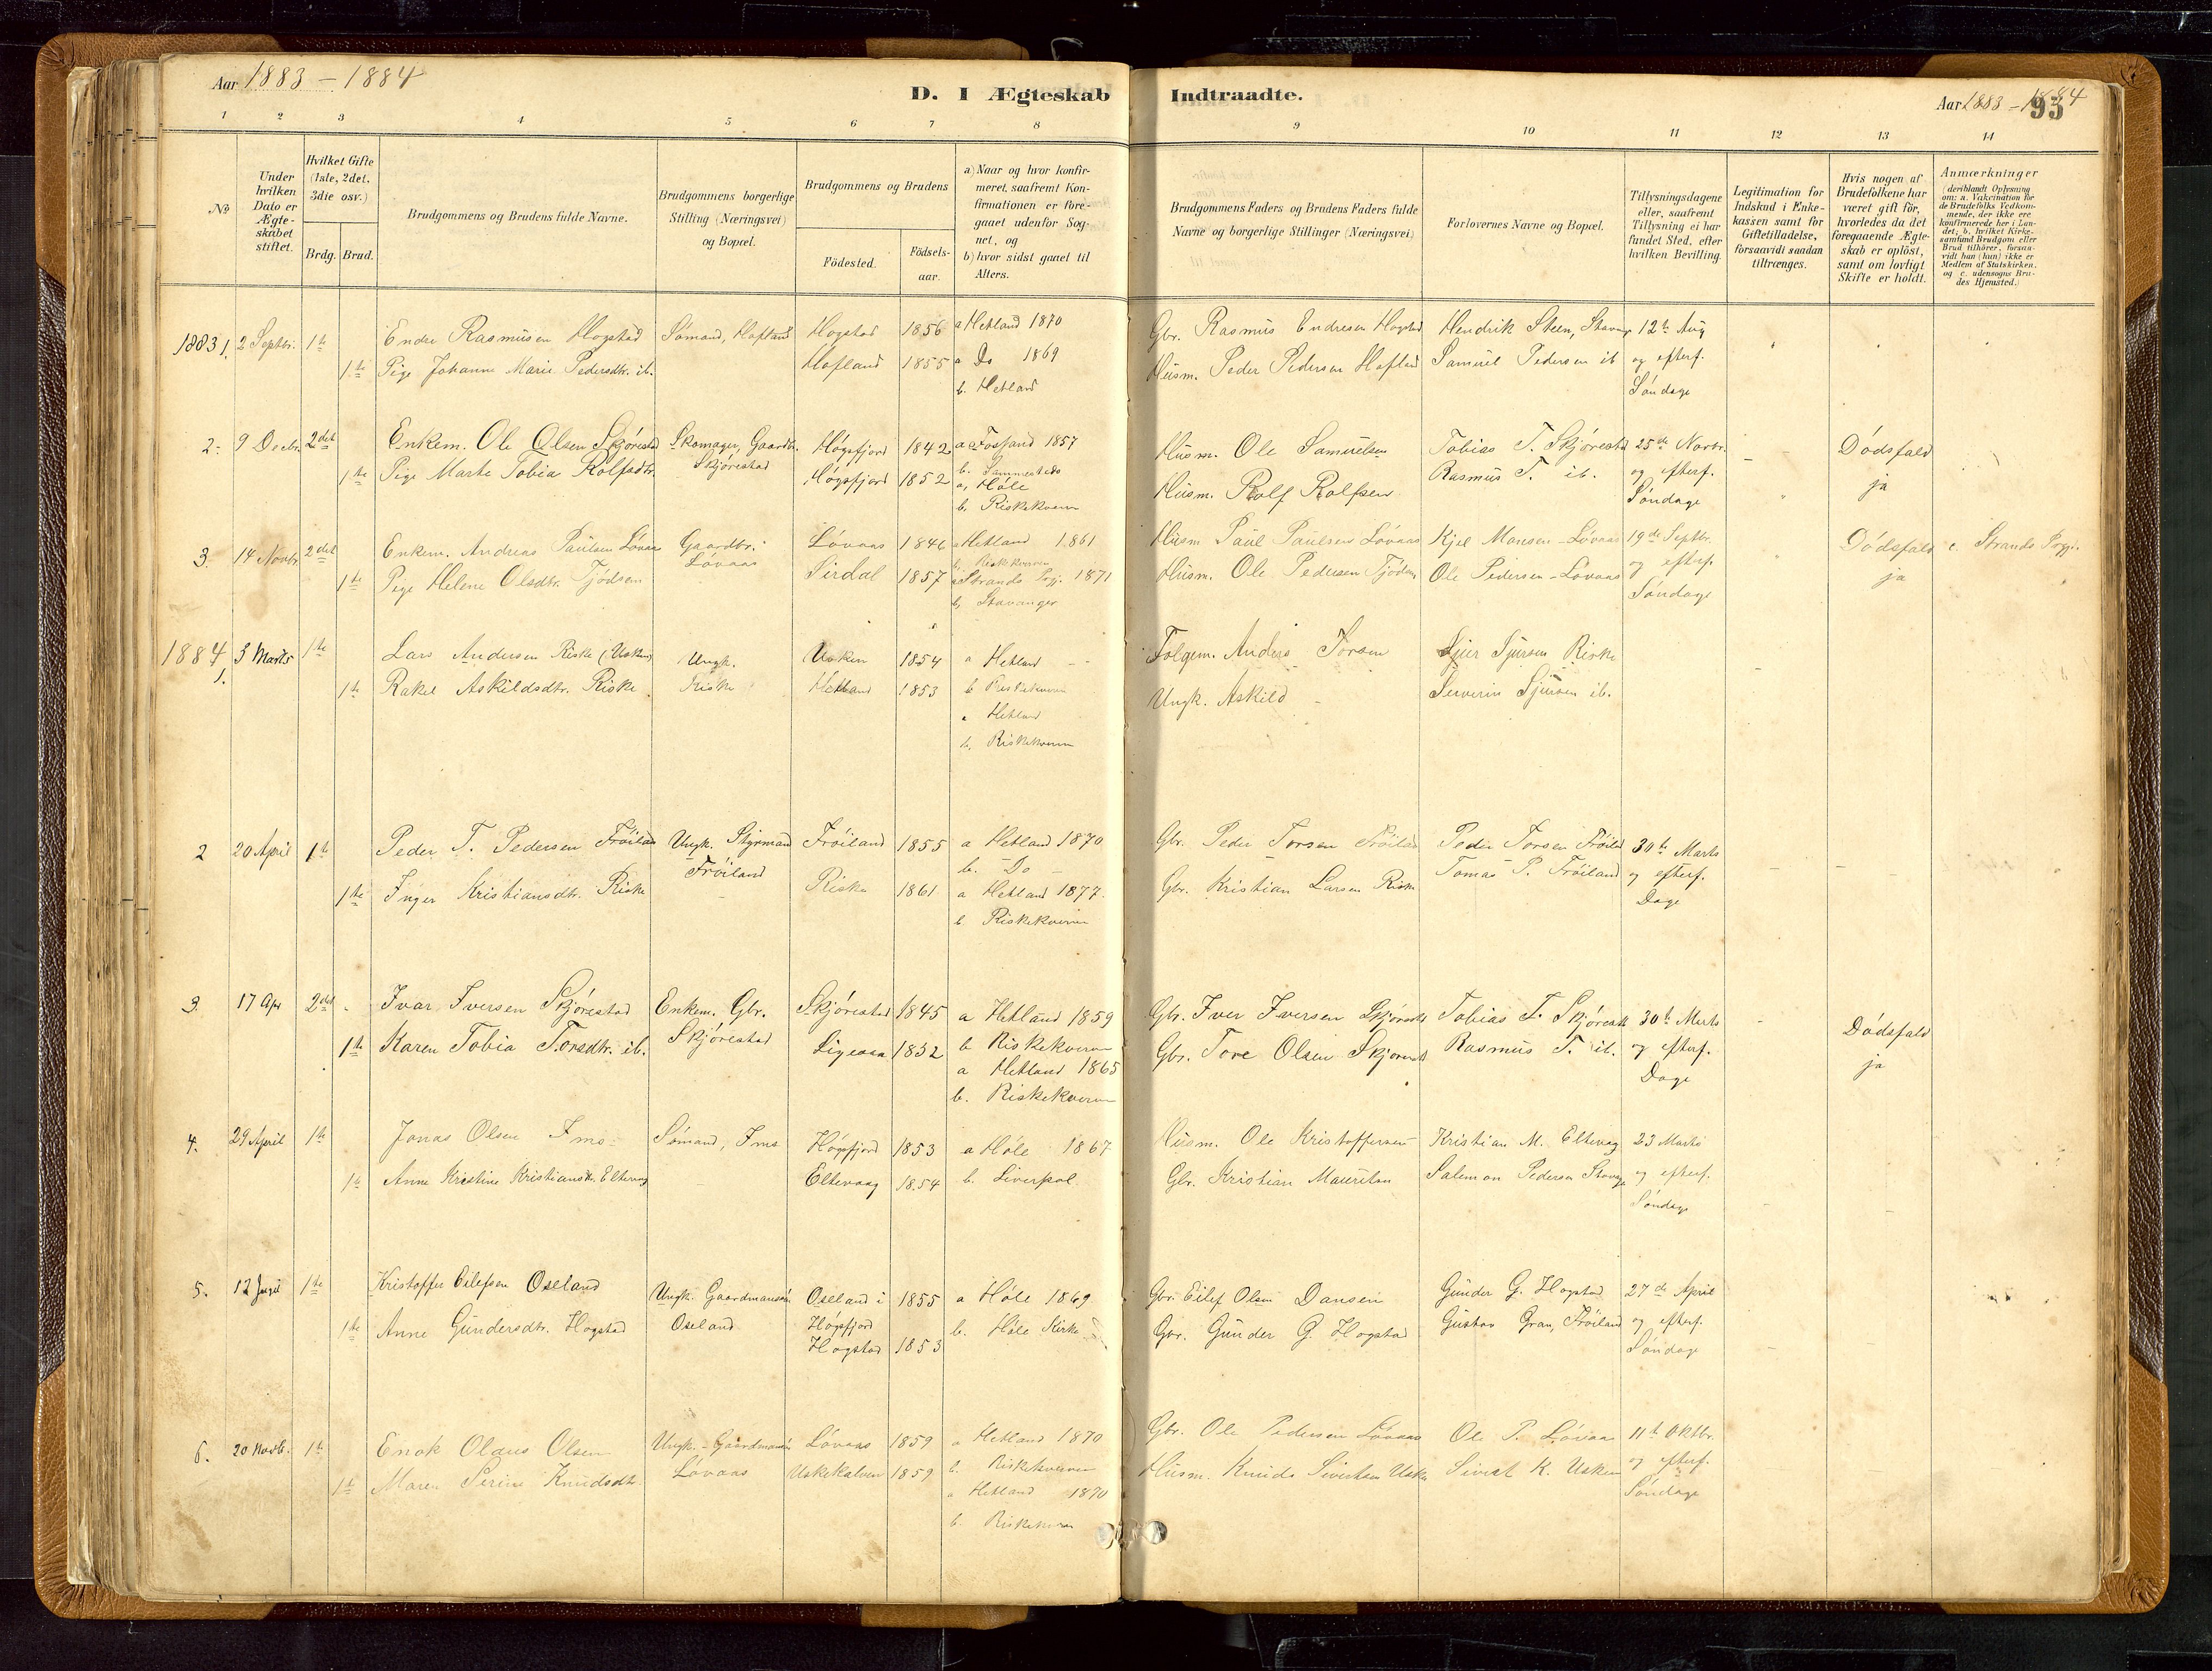 Aar 1883 – 1884
D. I Ægteskab Indtraadte.
Aar 1883 – 1884
93
1 2 3 4 5 6 7 8 9 10 11 12 13 14
No
Under hvilken Dato er Ægteskabet stiftet.
Hvilket Gifte (1ste, 2det, 3die osv.)
Brdg. Brud.
Brudgommens og Brudens fulde Navne.
Brudgommens borgerlige Stilling (Næringsvei) og Bopæl.
Brudgommens og Brudens
Födested.
Födsels-aar.
a) Naar og hvor konfirmeret, saafremt Konfirmationen er foregaaet udenfor Sognet, og
b) hvor sidst gaaet til Alters.
Brudgommens Faders og Brudens Faders fulde Navne og borgerlige Stillinger (Næringsvei)
Forlovernes Navne og Bopæl.
Tillysningsdagene eller, saafremt Tillysning ei har fundet Sted, efter hvilken Bevilling.
Legitimation for Indskud i Enkekassen samt for Giftetilladelse, forsaavidt saadan tiltrænges.
Hvis nogen af Brudefolkene har været gift för, hvorledes da det foregaaende Ægteskab er oplöst, samt om lovligt Skifte er holdt.
Anmærkninger (deriblandt Oplysning om: a. Vakcination for de Brudefolks Vedkommende, der ikke ere konfirmerede her i Landet; b. hvilket Kirkesamfund Brudgom eller Brud tilhörer, forsaavidt han (hun) ikke er Medlem af Statskirken, og c. udensogns Brudes Hjemsted.)
1883 1. 2 Septbr. 1te Endre Rasmusen Hogstad Sømand, Hofland Hogstad 1856 a Hetland 1870 Gbr. Rasmus Endresen Hogstad Hendrik Steen, Stavgr 12te Aug
1te Pige Johanne Marie Pedersdtr. ib. Hofland 1855 a Do 1869 Husm. Peder Pedersen Hofland Samuel Pedersen ib og efterf.
b. Hetland Søndage
2. 9 Decbr. 2det Enkem. Ole Olsen Skjørestad Skomager, Gaardbr. Høgsfjord 1842 a Fossand 1857 Husm. Ole Samuelsen Tobias T. Skjørestad 25de Novbr. Dødsfald
Skjørestad b. Sammesteds
1te Pige Marte Tobia Rolfsdtr. Høgsfjord 1852 a, Høle Husm. Rolf Rolfsen Rasmus T. ib. og efterf. ja
b. Riskekvern Søndage
3. 14 Novbr 2det Enkem. Andreas Paulsen Løvaas Gaardbr. Løvaas 1846 a Hetland 1861 Husm Paul Paulsen Løvaas Kjel Monsen – Løvaas 19de Septbr. Dødsfald c. Strands Prgj.
Løvaas b. Riskekvern
1te Pige Helene Olsdtr. Tjødsem Sirdal 1857 a Strands Pgj. 1871 Husm. Ole Pedersen Tjødsem Ole Pedersen – Løvaas og efterf. ja
b, Stavanger Søndage
1884 1. 3 Marts 1te Lars Andersen Riske (Usken) Ungk. Usken 1854 a Hetland Folgem. Anders Torsen Sjur Sjursen Riske
1te Rakel Askildsdtr. Riske Riske Hetland 1853 b Riskekvern Ungk. Askild – Severin Sjursen ib.
a Hetland
b. Riskekvern
2 20 April 1te Peder T. Pedersen Frøiland Ungk. Styrmand Frøiland 1855 a Hetland 1870 Gbr. Peder Torsen Frøiland Peder Torsen Frøiland 30te Marts
Frøiland b. Do Tomas P. Frøiland og efterf.
1te Inger Kristiansdtr. Riske Riske 1861 a Hetland 1877 Gbr. Kristian Larsen Riske Dage
b Riskekvern
3. 17 Apr 2det Ivar Iversen Skjørestad Enkem. Gbr. Skjørestad 1845 a Hetland 1859 Gbr. Iver Iversen Skjørestad Tobias T. Skjørestad 30te Marts Dødsfald
1te Karen Tobia Torsdtr. ib. Skjørestad Ligeaaa 1852 b Riskekvern Gbr. Tore Olsen Skjørestad Rasmus T. ib. og efterf. ja
a Hetland 1865 Dage
b. Riskekvern
4. 29 April 1te Jonas Olsen Ims Sømand, Ims Høgsfjord 1853 a Høle 1867 Husm. Ole Kristoffersen Kristian M. Eltevag 23 Marts
1te Anne Kristine Kristiansdtr. Eltevag Eltevaag 1854 b. Liverpol Gbr. Kristian Mauritsen Salemon Pedersen Stavgr og efterf.
Søndage
5. 12 Juni 1te Kristoffer Eilefsen Oseland Ungk. Gaardmansøn Oseland i 1855 a Høle 1869 Gbr. Eilef Olsen Dansen Gunder G. Hogstad 27de April
1te Anne Gundersdtr. Hogstad Oseland Høgsfjord b. Høle Kirke Gbr. Gunder G. Hogstad Gustav Gran, Frøiland og efterf.
Hogstad 1853 Søndage
6. 20 Novb. 1te Enok Olaus Olsen Ungk. – Gaardmansøn Løvaas 1859 a Hetland 1870 Gbr. Ole Pedersen Løvaas Ole P. Løvaas 11te Oktbr.
1te Maren Serine Knudsdtr. Løvaas Uskekalven 1859 b. Riskekvern Husm. Knud Sivertsen Usken Sivert K. Usken og efterf.
a Hetland 1870 Søndage
b. Riskekvern